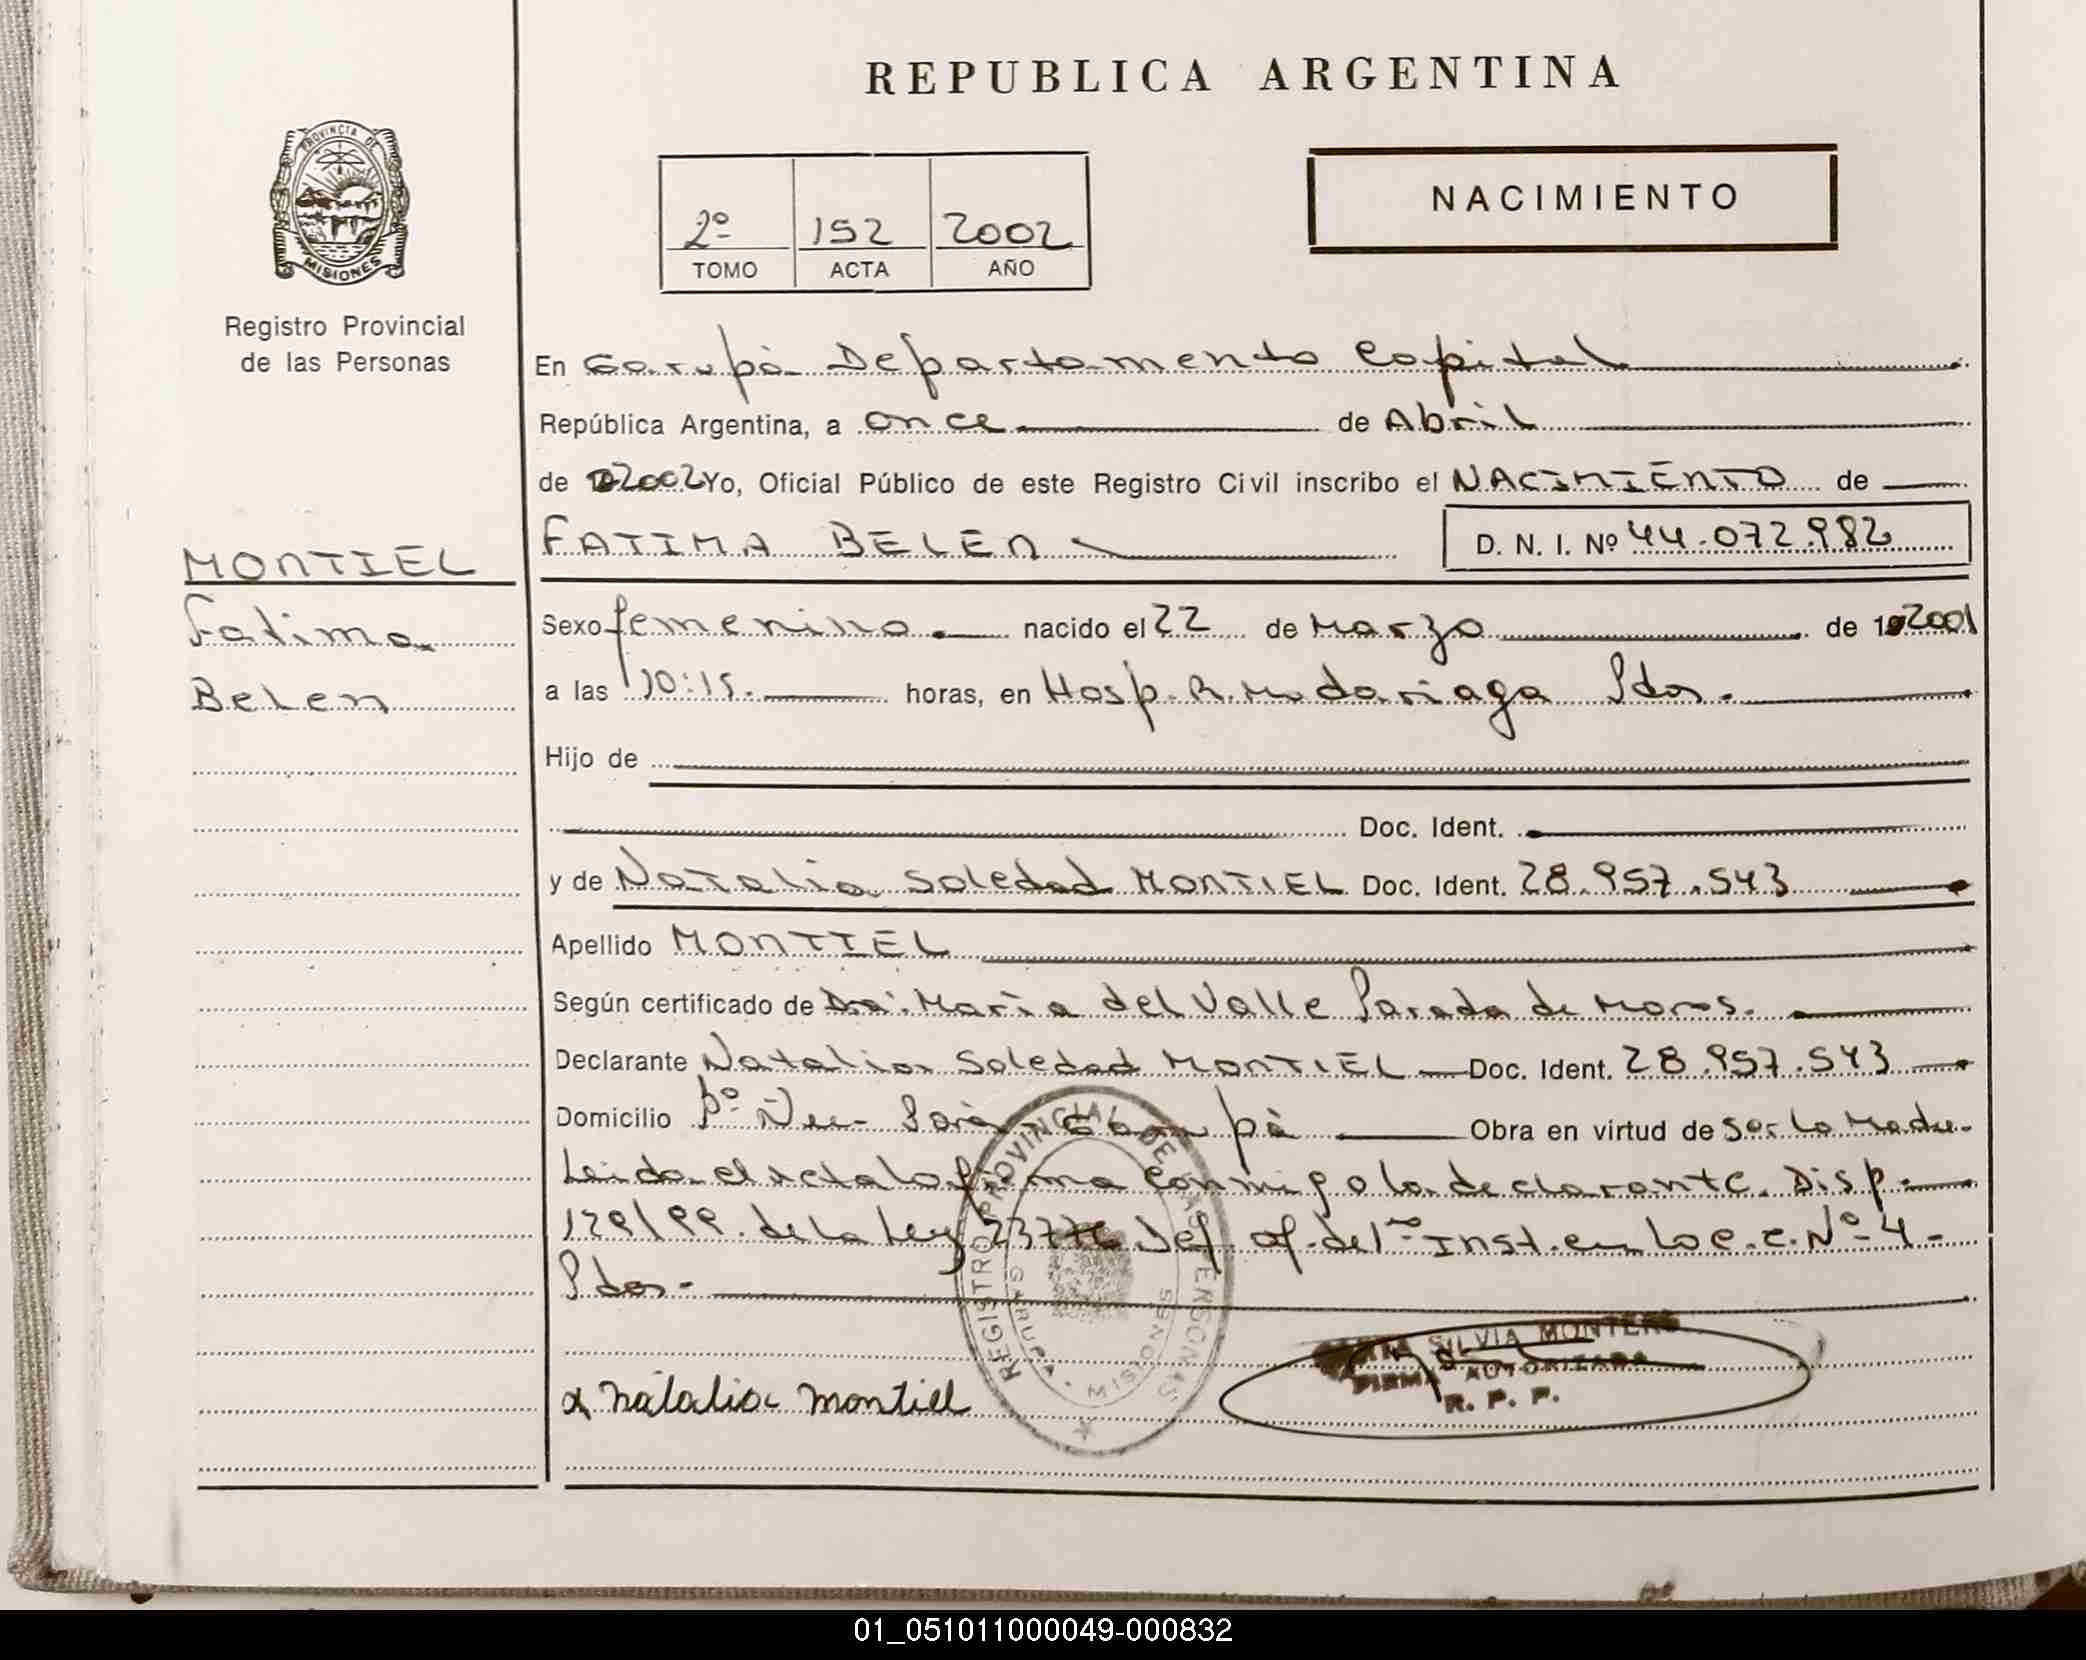 REPUBLICA ARGENTINA
PROVINCIA DE
MISIONES
NACIMIENTO
2º 152 2002
TOMO ACTA AÑO
Registro Provincial
de las Personas
En Garupá Departamento Capital
República Argentina, a once de Abril
de 2002 Yo, Oficial Público de este Registro Civil inscribo el NACIMIENTO de
FATIMA BELEN D. N. I. Nº 44.072.982
MONTIEL
Fatima
Belen
Sexo femenino nacido el 22 de Marzo de 2001
a las 10:15. horas, en Hosp. R. Madariaga Pdas.
Hijo de
Doc. Ident.
y de Natalia Soledad MONTIEL Doc. Ident. 28.957.543
Apellido MONTIEL
Según certificado de Dra. María del Valle Parada de
Declarante Natalia Soledad MONTIEL Doc. Ident. 28.957.543
Domicilio Bº Ñu Porá Garupá Obra en virtud de ser la Madre.
Leida el acta la firma conmigo la declarante. Disp.
129/99. de la Ley Inst. en Nº 4-
Pdas-
REGISTRO PROVINCIAL DE LAS PERSONAS
GARUPA - MISIONES
SILVIA MONTERO
FIRMA AUTORIZADA
R. P. P.
Natalia Montiel
01_051011000049-000832